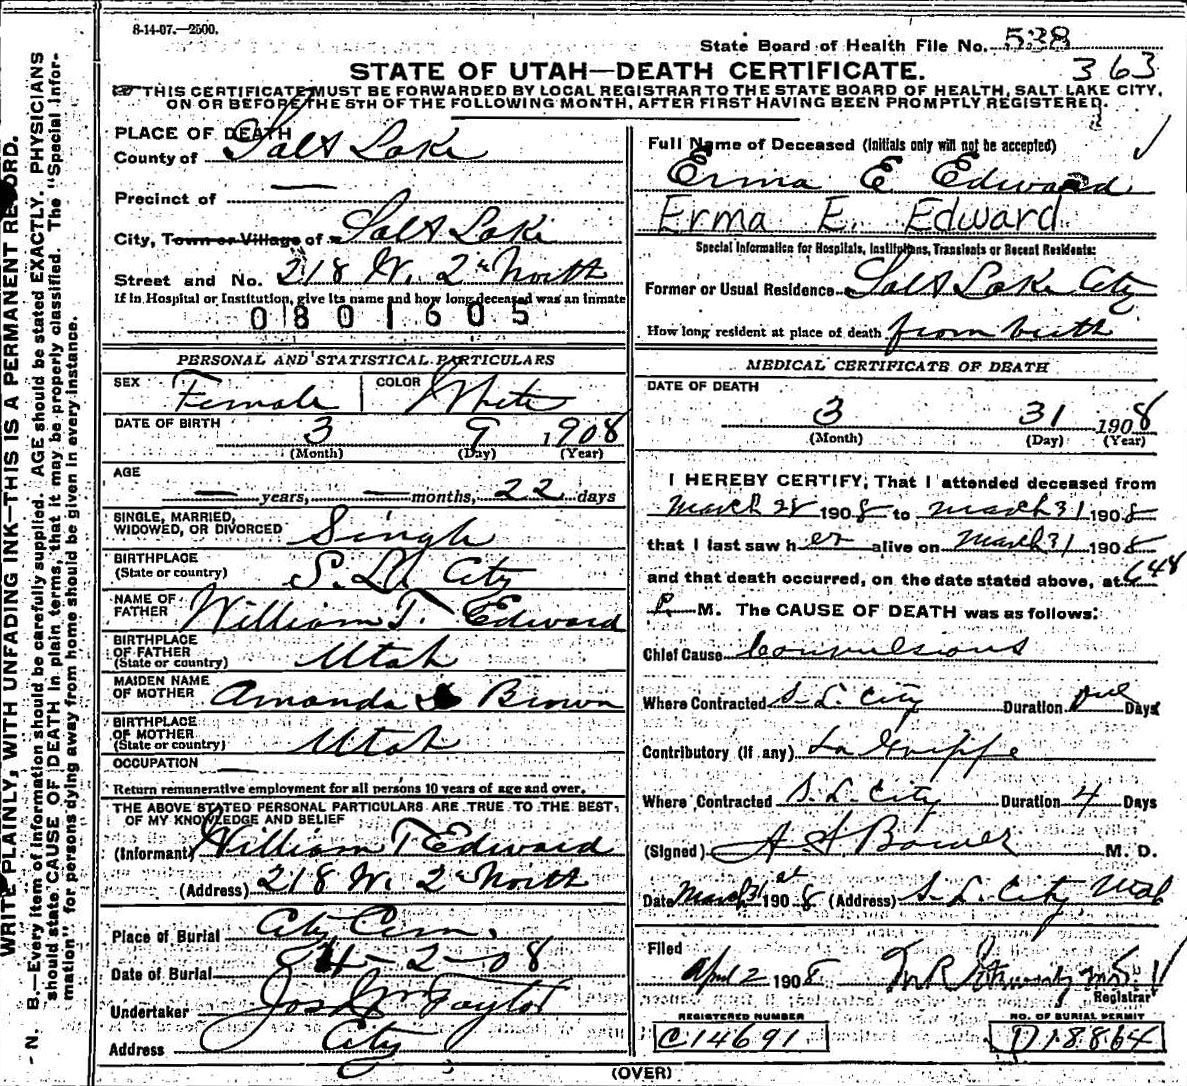 8-14-07.—2500.
State Board of Health File No. 538
363
STATE OF UTAH—DEATH CERTIFICATE.
THIS CERTIFICATE MUST BE FORWARDED BY LOCAL REGISTRAR TO THE STATE BOARD OF HEALTH, SALT LAKE CITY,
ON OR BEFORE THE 5TH OF THE FOLLOWING MONTH, AFTER FIRST HAVING BEEN PROMPTLY REGISTERED.
WRITE PLAINLY, WITH UNFADING INK—THIS IS A PERMANENT RECORD.
N. B.—Every item of information should be carefully supplied. AGE should be stated EXACTLY. PHYSICIANS
should state CAUSE OF DEATH in plain terms, that it may be properly classified. The "Special Infor-
mation" for persons dying away from home should be given in every instance.
PLACE OF DEATH
County of Salt Lake
Precinct of —
City, Town or Village of Salt Lake
Street and No. 218 W. 2nd North
If in Hospital or Institution, give its name and how long deceased was an inmate
0801605
PERSONAL AND STATISTICAL PARTICULARS
SEX Female COLOR White
DATE OF BIRTH 3 9 1908
(Month) (Day) (Year)
AGE
— years, — months, 22 days
SINGLE, MARRIED,
WIDOWED, OR DIVORCED Single
BIRTHPLACE
(State or country) S. L. City
NAME OF
FATHER William T. Edward
BIRTHPLACE
OF FATHER
(State or country) Utah
MAIDEN NAME
OF MOTHER Amanda Brown
BIRTHPLACE
OF MOTHER
(State or country) Utah
OCCUPATION —
Return remunerative employment for all persons 10 years of age and over.
THE ABOVE STATED PERSONAL PARTICULARS ARE TRUE TO THE BEST
OF MY KNOWLEDGE AND BELIEF
(Informant) William T Edward
(Address) 218 W. 2nd North
Place of Burial City Cem.
Date of Burial 4-2-08
Undertaker Jos Wm Taylor
Address City
Full Name of Deceased (Initials only will not be accepted)
Erma E Edward
Erma E. Edward
Special Information for Hospitals, Institutions, Transients or Recent Residents:
Former or Usual Residence Salt Lake City
How long resident at place of death from birth
MEDICAL CERTIFICATE OF DEATH
DATE OF DEATH
3 31 1908
(Month) (Day) (Year)
I HEREBY CERTIFY, That I attended deceased from
March 28 1908 to March 31 1908
that I last saw her alive on March 31 1908
and that death occurred, on the date stated above, at 6.48
P. M. The CAUSE OF DEATH was as follows:
Chief Cause Convulsions
Where Contracted S. L. City Duration One Days
Contributory (if any) La Grippe
Where Contracted S. L. City Duration 4 Days
(Signed) A. A. Bower M. D.
Date March 31st 1908 (Address) S. L. City, Utah
Filed
April 2 1908
Registrar
REGISTERED NUMBER NO. OF BURIAL PERMIT
C14691 D18864
(OVER)